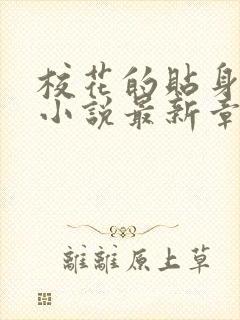 校花的貼身
小說最新章
離離原上草